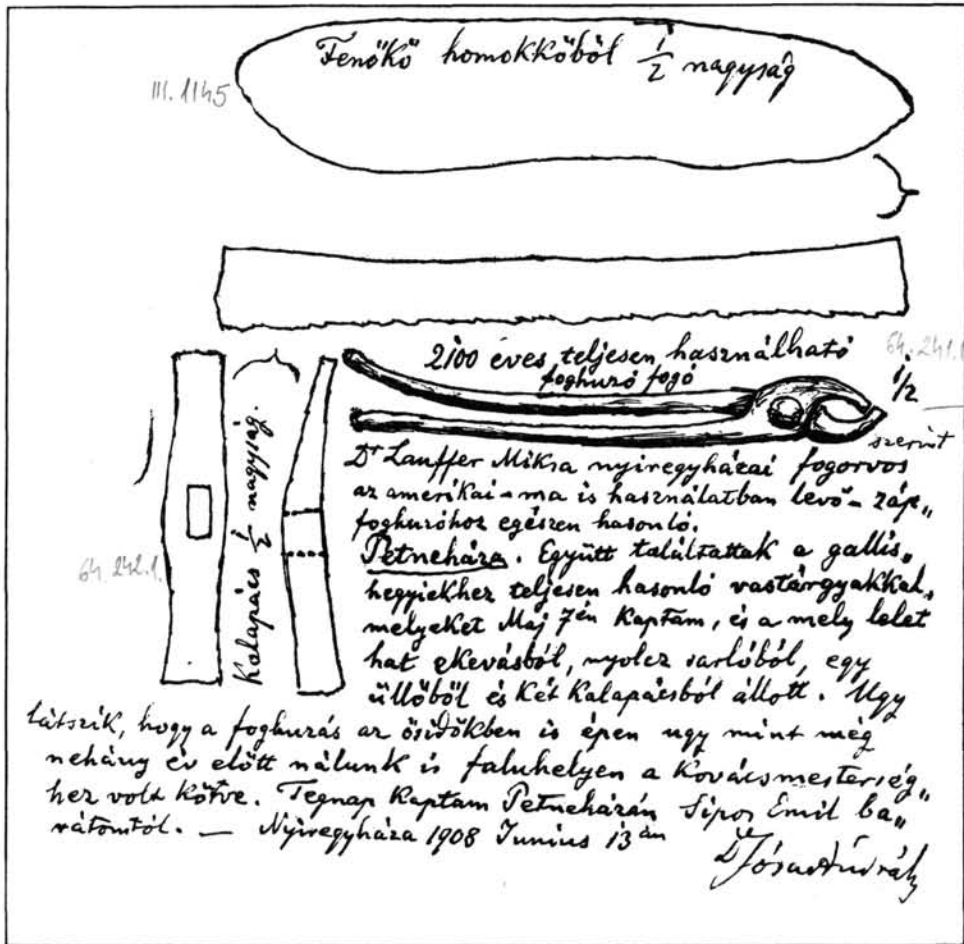 Fenőkő homokkőből 1/2 nagyság
III. 1145
2100 éves teljesen használható
foghuzó fogó
64.241.1
1/2
szerint
Dr Lauffer Miksa nyiregyházai fogorvos
az amerikai – ma is használatban levő – záp„
foghuzóhoz egészen hasonló.
Petneháza. Együtt találtattak a gallis„
hegyiekhez teljesen hasonló vastárgyakkal„
melyeket Maj 7én Kaptam, és a mely lelet
hat ekevásból, nyolcz sarlóból, egy
üllőből és Két Kalapácsból állott. Ugy
látszik, hogy a foghuzás az ősidőkben is épen ugy mint még
nehány év előtt nálunk is faluhelyen a Kovácsmesterség„
hez volt Kötve. Tegnap Kaptam Petneházán Sipos Emil ba„
rátomtól. — Nyiregyháza 1908 Junius 13án
Dr Jósa András
Kalapács 1/2 nagyság.
64.242.1.